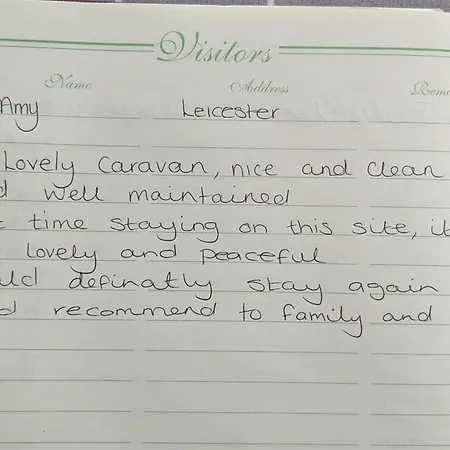 Visitors
Name Address
Amy Leicester
Lovely caravan, nice and clean
well maintained
time staying on this site, it
lovely and peaceful
definatly stay again
recommend to family and